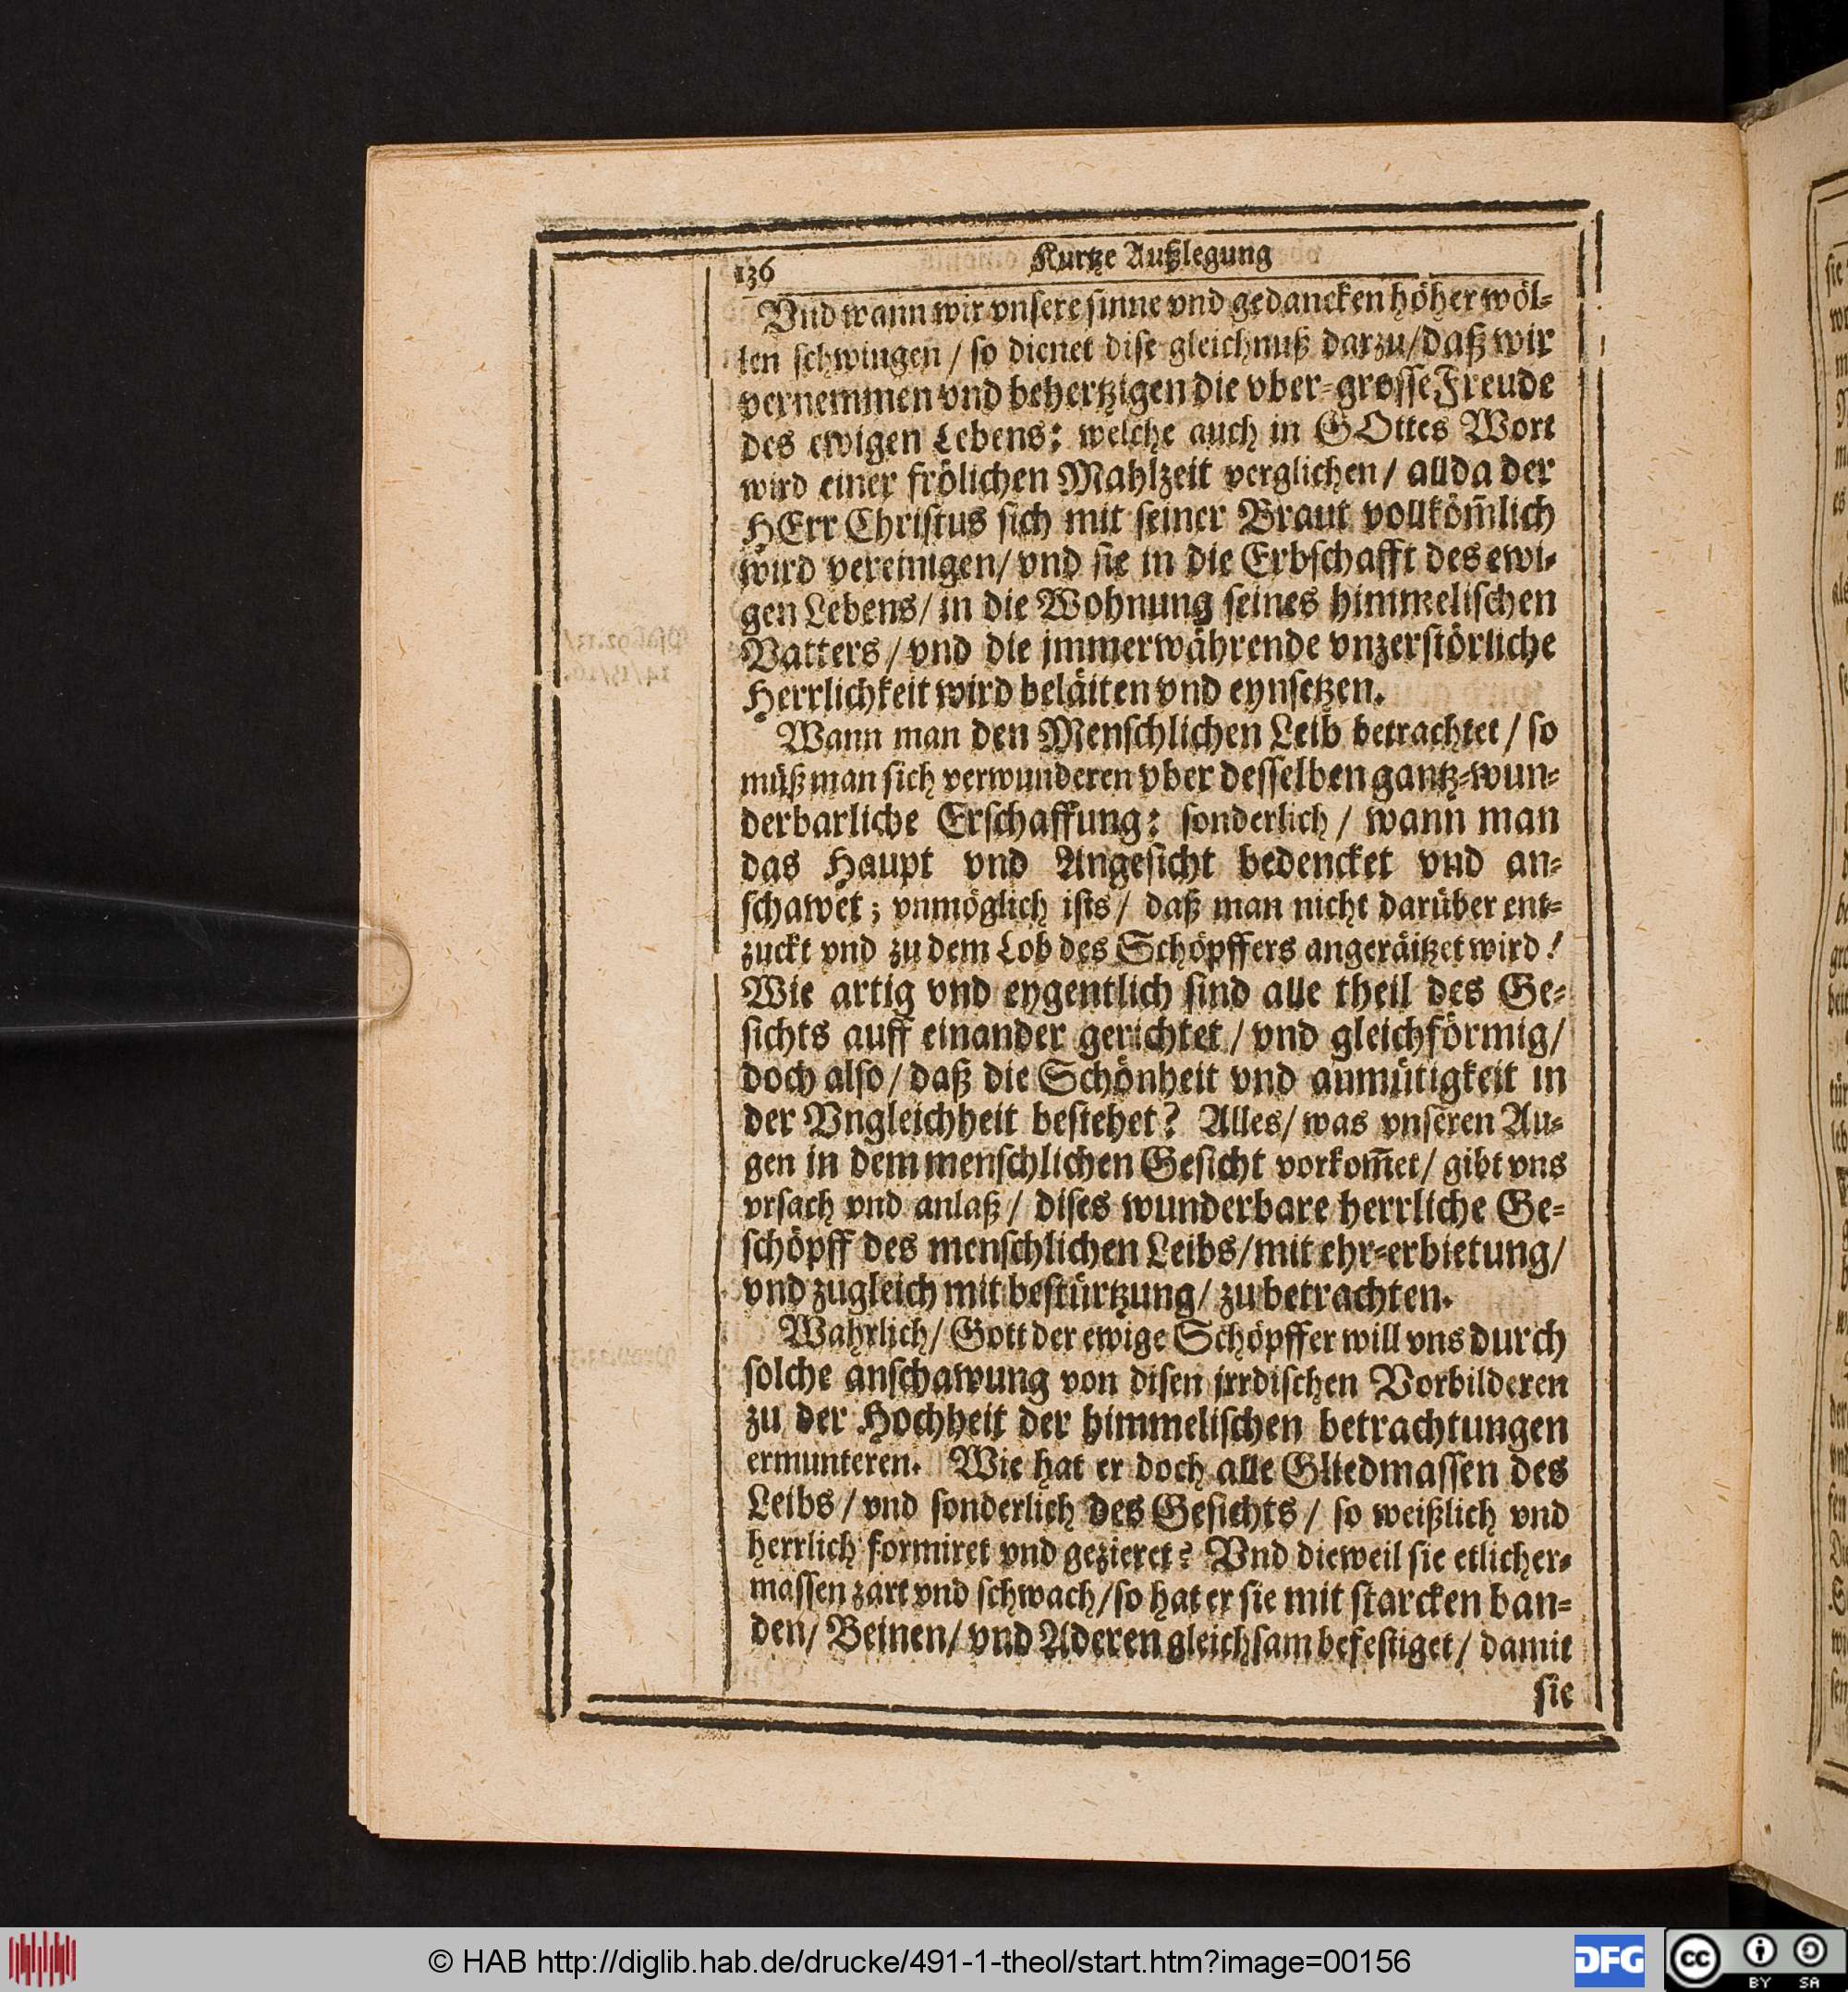 136
Kurtze Außlegung
Vnd wann wir vnsere sinne vnd gedancken höher wöl-
len schwingen / so dienet dise gleichnuß darzu / daß wir
vernemmen vnd behertzigen die vber-grosse Freude
des ewigen Lebens: welche auch in GOttes Wort
wird einer frölichen Mahlzeit verglichen / allda der
HErr Christus sich mit seiner Braut vollköm̃lich
wird vereinigen / vnd sie in die Erbschafft des ewi-
gen Lebens / in die Wohnung seines himmelischen
Vatters / vnd die jmmerwährende vnzerstörliche
Herrlichkeit wird beläiten vnd eynsetzen.
Wann man den Menschlichen Leib betrachtet / so
müß man sich verwunderen vber desselben gantz-wun-
derbarliche Erschaffung: sonderlich / wann man
das Haupt vnd Angesicht bedencket vnd an-
schawet; vnmöglich ists / daß man nicht darüber ent-
zuckt vnd zu dem Lob des Schöpffers angeräitzet wird!
Wie artig vnd eygentlich sind alle theil des Ge-
sichts auff einander gerichtet / vnd gleichförmig /
doch also / daß die Schönheit vnd anmütigkeit in
der Vngleichheit bestehet? Alles / was vnseren Au-
gen in dem menschlichen Gesicht vorkom̃et / gibt vns
vrsach vnd anlaß / dises wunderbare herrliche Ge-
schöpff des menschlichen Leibs / mit ehr-erbietung /
vnd zugleich mit bestürtzung / zu betrachten.
Wahrlich / Gott der ewige Schöpffer will vns durch
solche anschawung von disen jrrdischen Vorbilderen
zu der Hochheit der himmelischen betrachtungen
ermunteren. Wie hat er doch alle Gliedmassen des
Leibs / vnd sonderlich des Gesichts / so weißlich vnd
herrlich formiret vnd gezieret? Vnd dieweil sie etlicher-
massen zart vnd schwach / so hat er sie mit starcken ban-
den / Beinen / vnd Aderen gleichsam befestiget / damit
sie
© HAB http://diglib.hab.de/drucke/491-1-theol/start.htm?image=00156
DFG
cc
BY SA